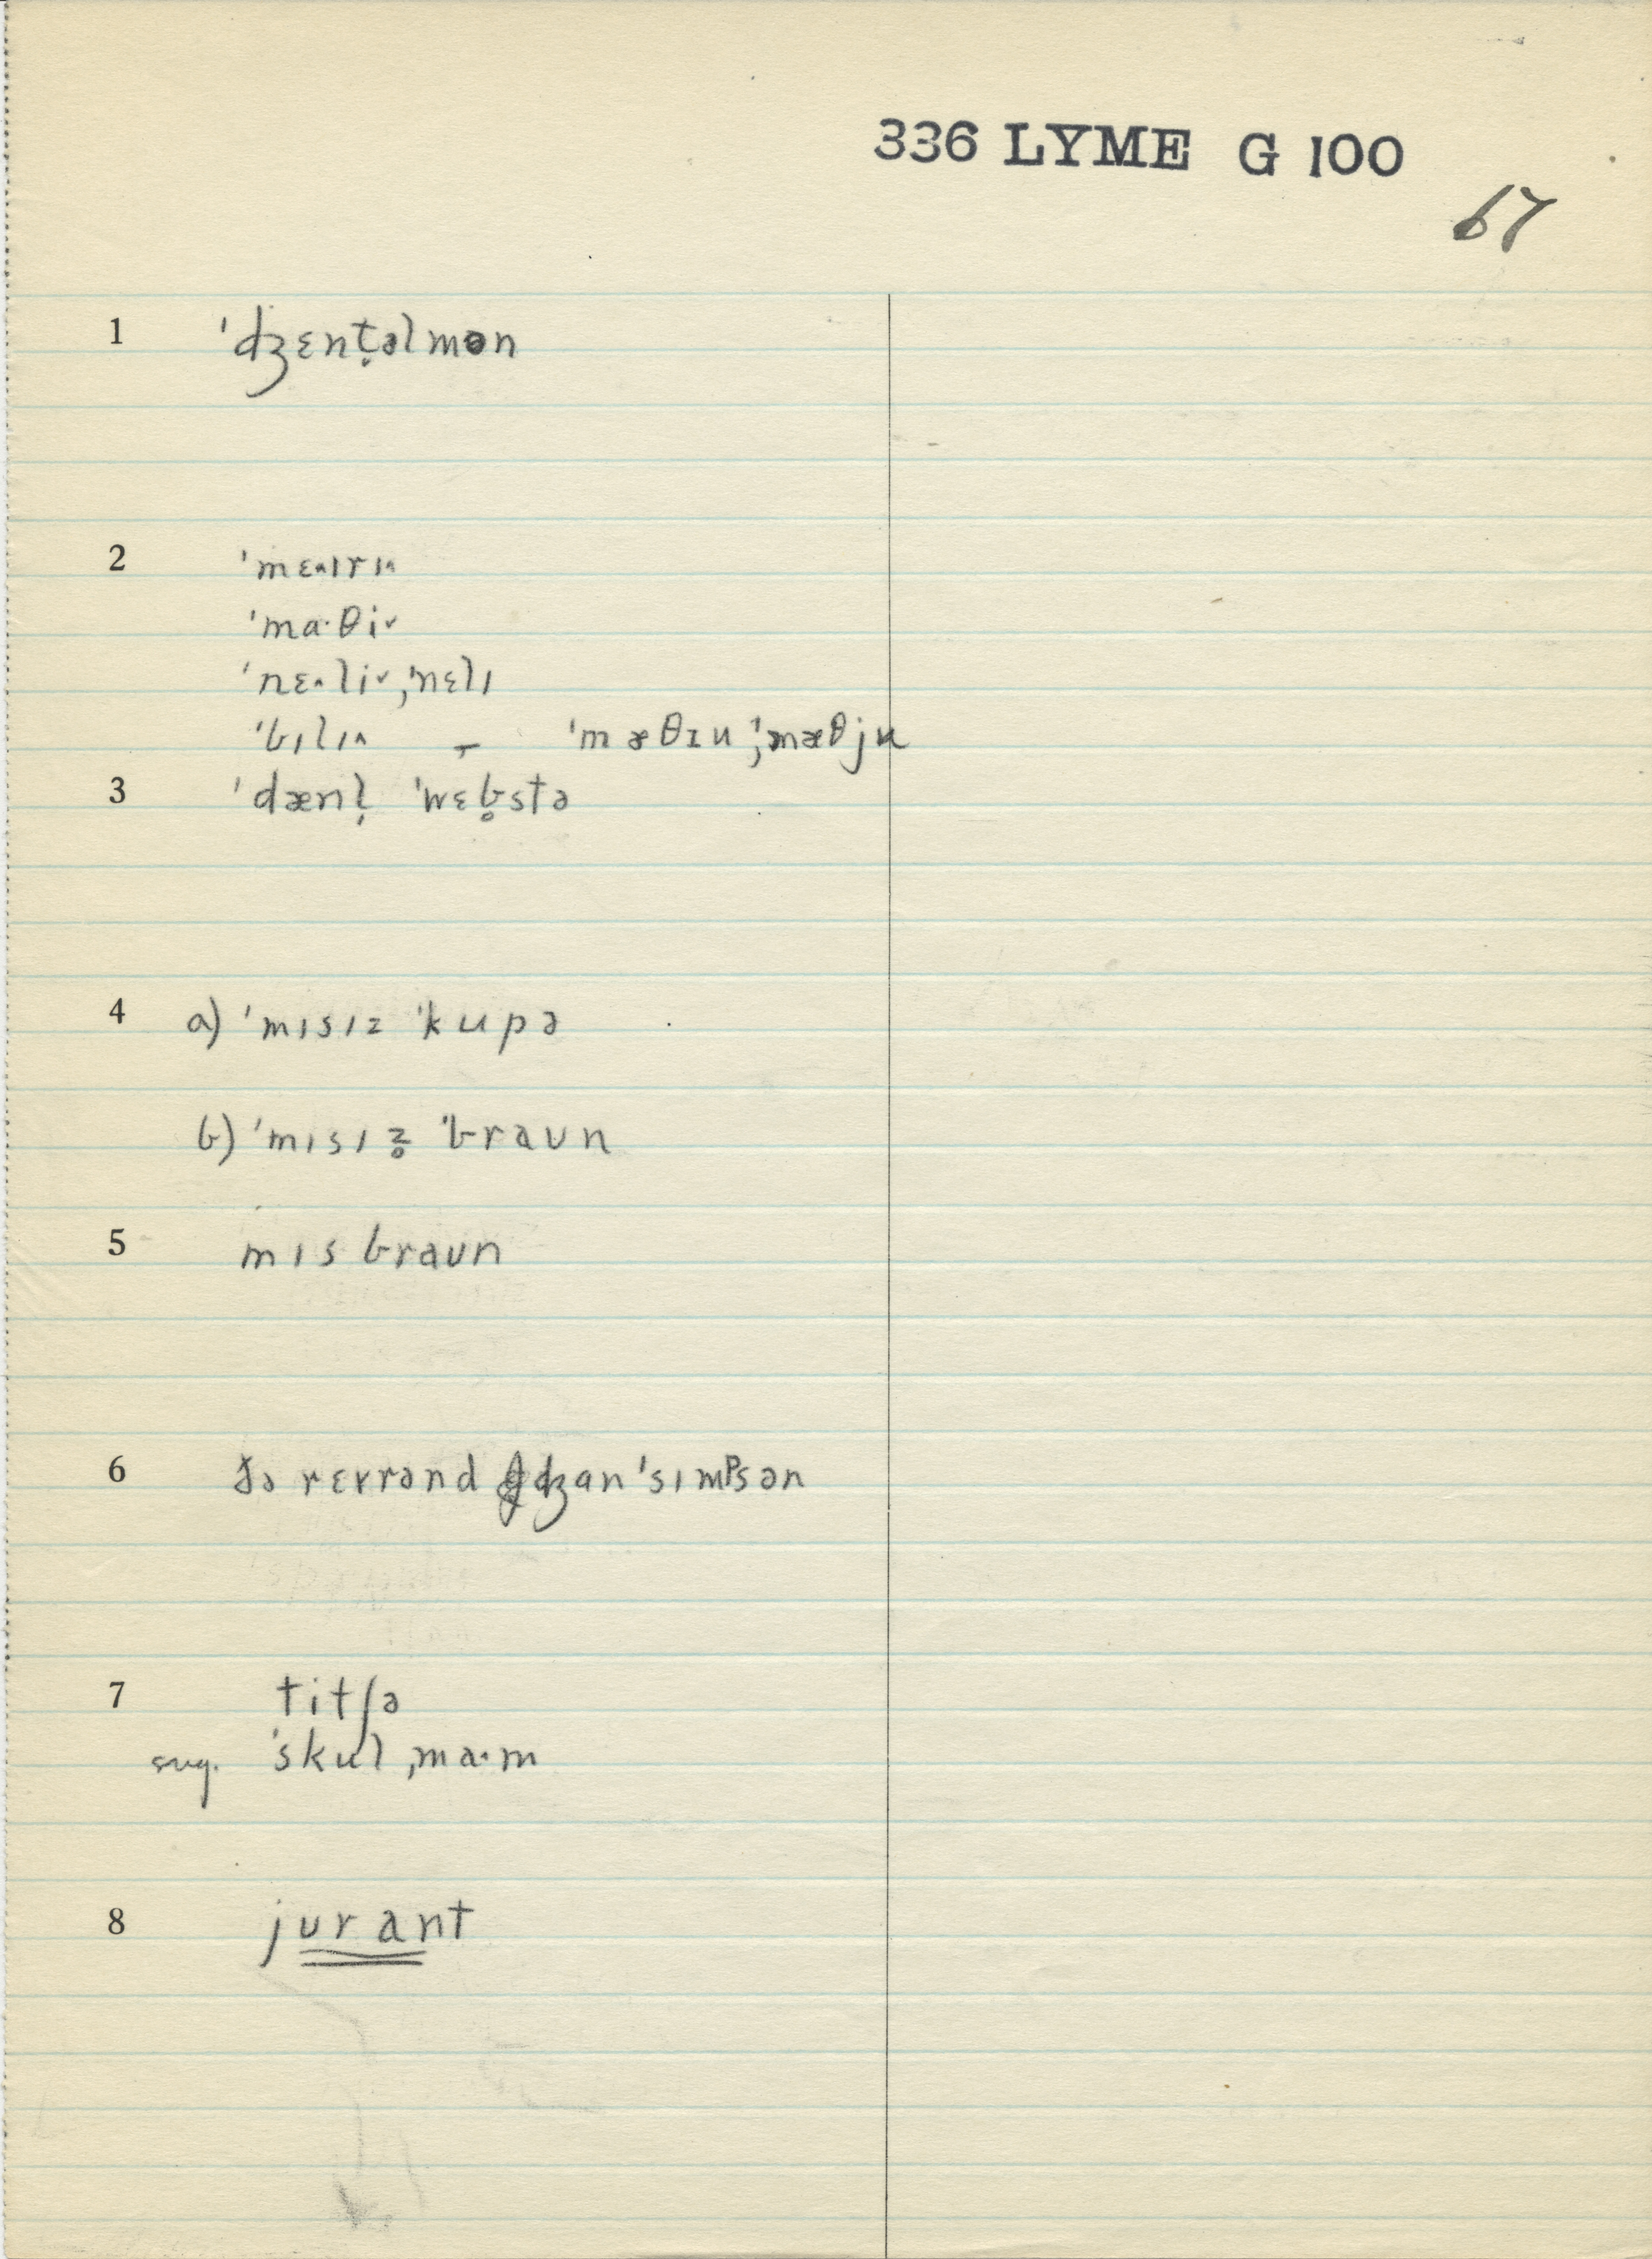 336 LYME G 100
67
1 ˈdʒɛnt̬əlmən
2 ˈmɛ˄ɪrɪ˄
ˈma·θi˅
ˈnɛ˄li˅, ˈnɛlɪ
ˈbɪlɪ˄ – ˈmæθɪu; ˈmæθju
3 ˈdænl̩ ˈwɛb̥stə
4 a) ˈmɪsɪz ˈkupə
b) ˈmɪsɪz̥ ˈbraun
5 mɪs braun
6 ðə rɛvrənd dʒan ˈsɪmᵖsən
7 titʃə
sug. ˈskulˌma·m
8 jurant